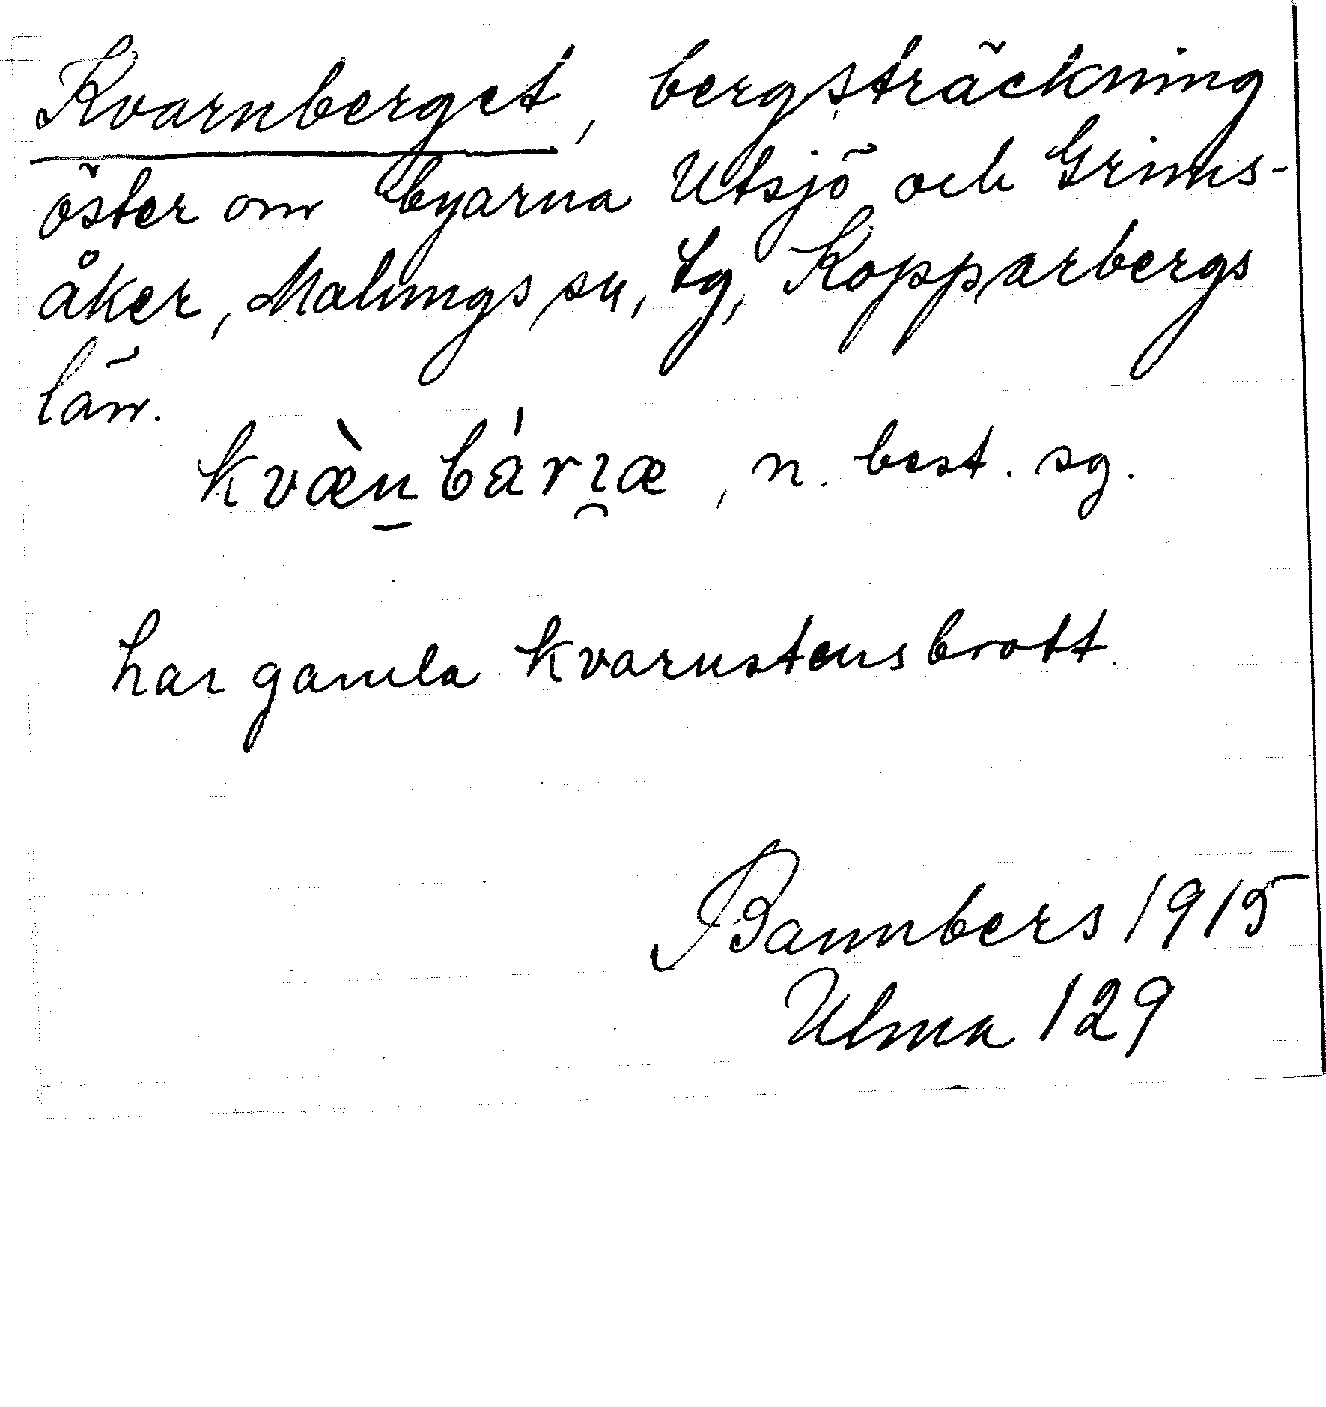 Kvarnberget, bergsträckning
öster om byarna Utsjö och Grims-
åker, Malungs sn, tg, Kopparbergs
län.
kvæ̀n̲bárı̯æ, n. best. sg.
har gamla kvarnstensbrott.
Bannbers 1915
Ulma 129